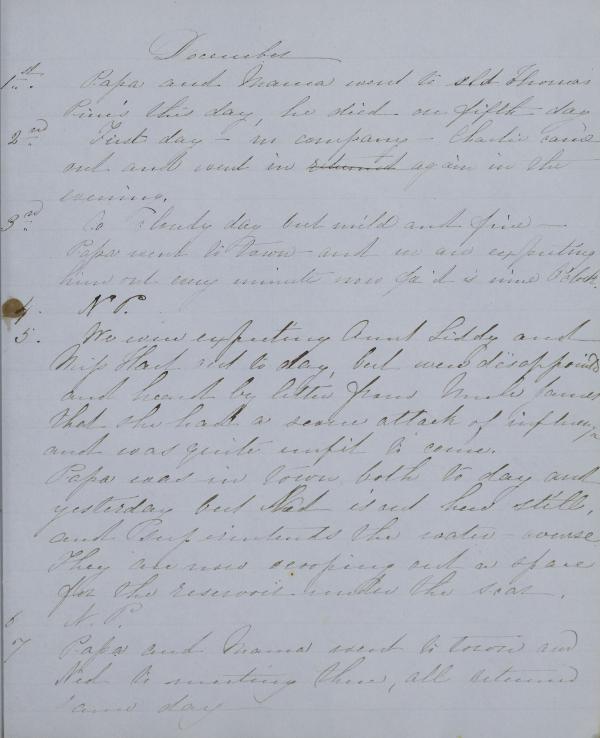 December
1st. Papa and Mama went to old Thomas
Pim's this day, he died on fifth day
2nd First day - no company - Charlie came
out and went in returned again in the
evening.
3rd A Cloudy day but mild and fine -
Papa went to Town - and we are expecting
him out every minute now for it is nine O'clock.
4. N. P.
5. We were expecting Aunt Liddy and
Miss Hart out to day, but were disappointed
and heard by letter from Uncle James
that she had a severe attack of influenza
and was quite unfit to come.
Papa was in town both to day and
yesterday but Ned is out here still,
and Superintends the water-course
They are now scooping out a space
for the reservoir under the seat.
6 N. P.
7 Papa and Mama went to town and
Ned to meeting there, all returned
same day